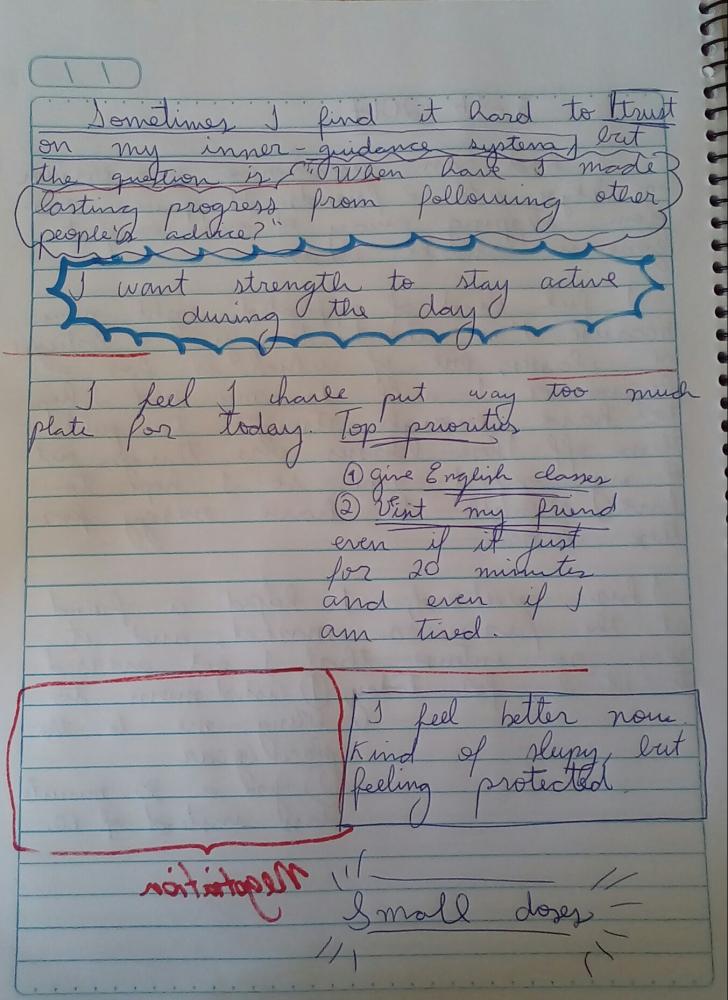 Sometimes I find it hard to trust
on my inner-guidance system, but
the question is, "When have I made
lasting progress from following other
people's advice?"
I want strength to stay active
during the day
I feel I have put way too much
plate for today. Top priorities
① give English classes
② Visit my friend
even if it just
for 20 minutes
and even if I
am tired.
I feel better now.
Kind of sleepy, but
feeling protected.
Negotiation
Small doses